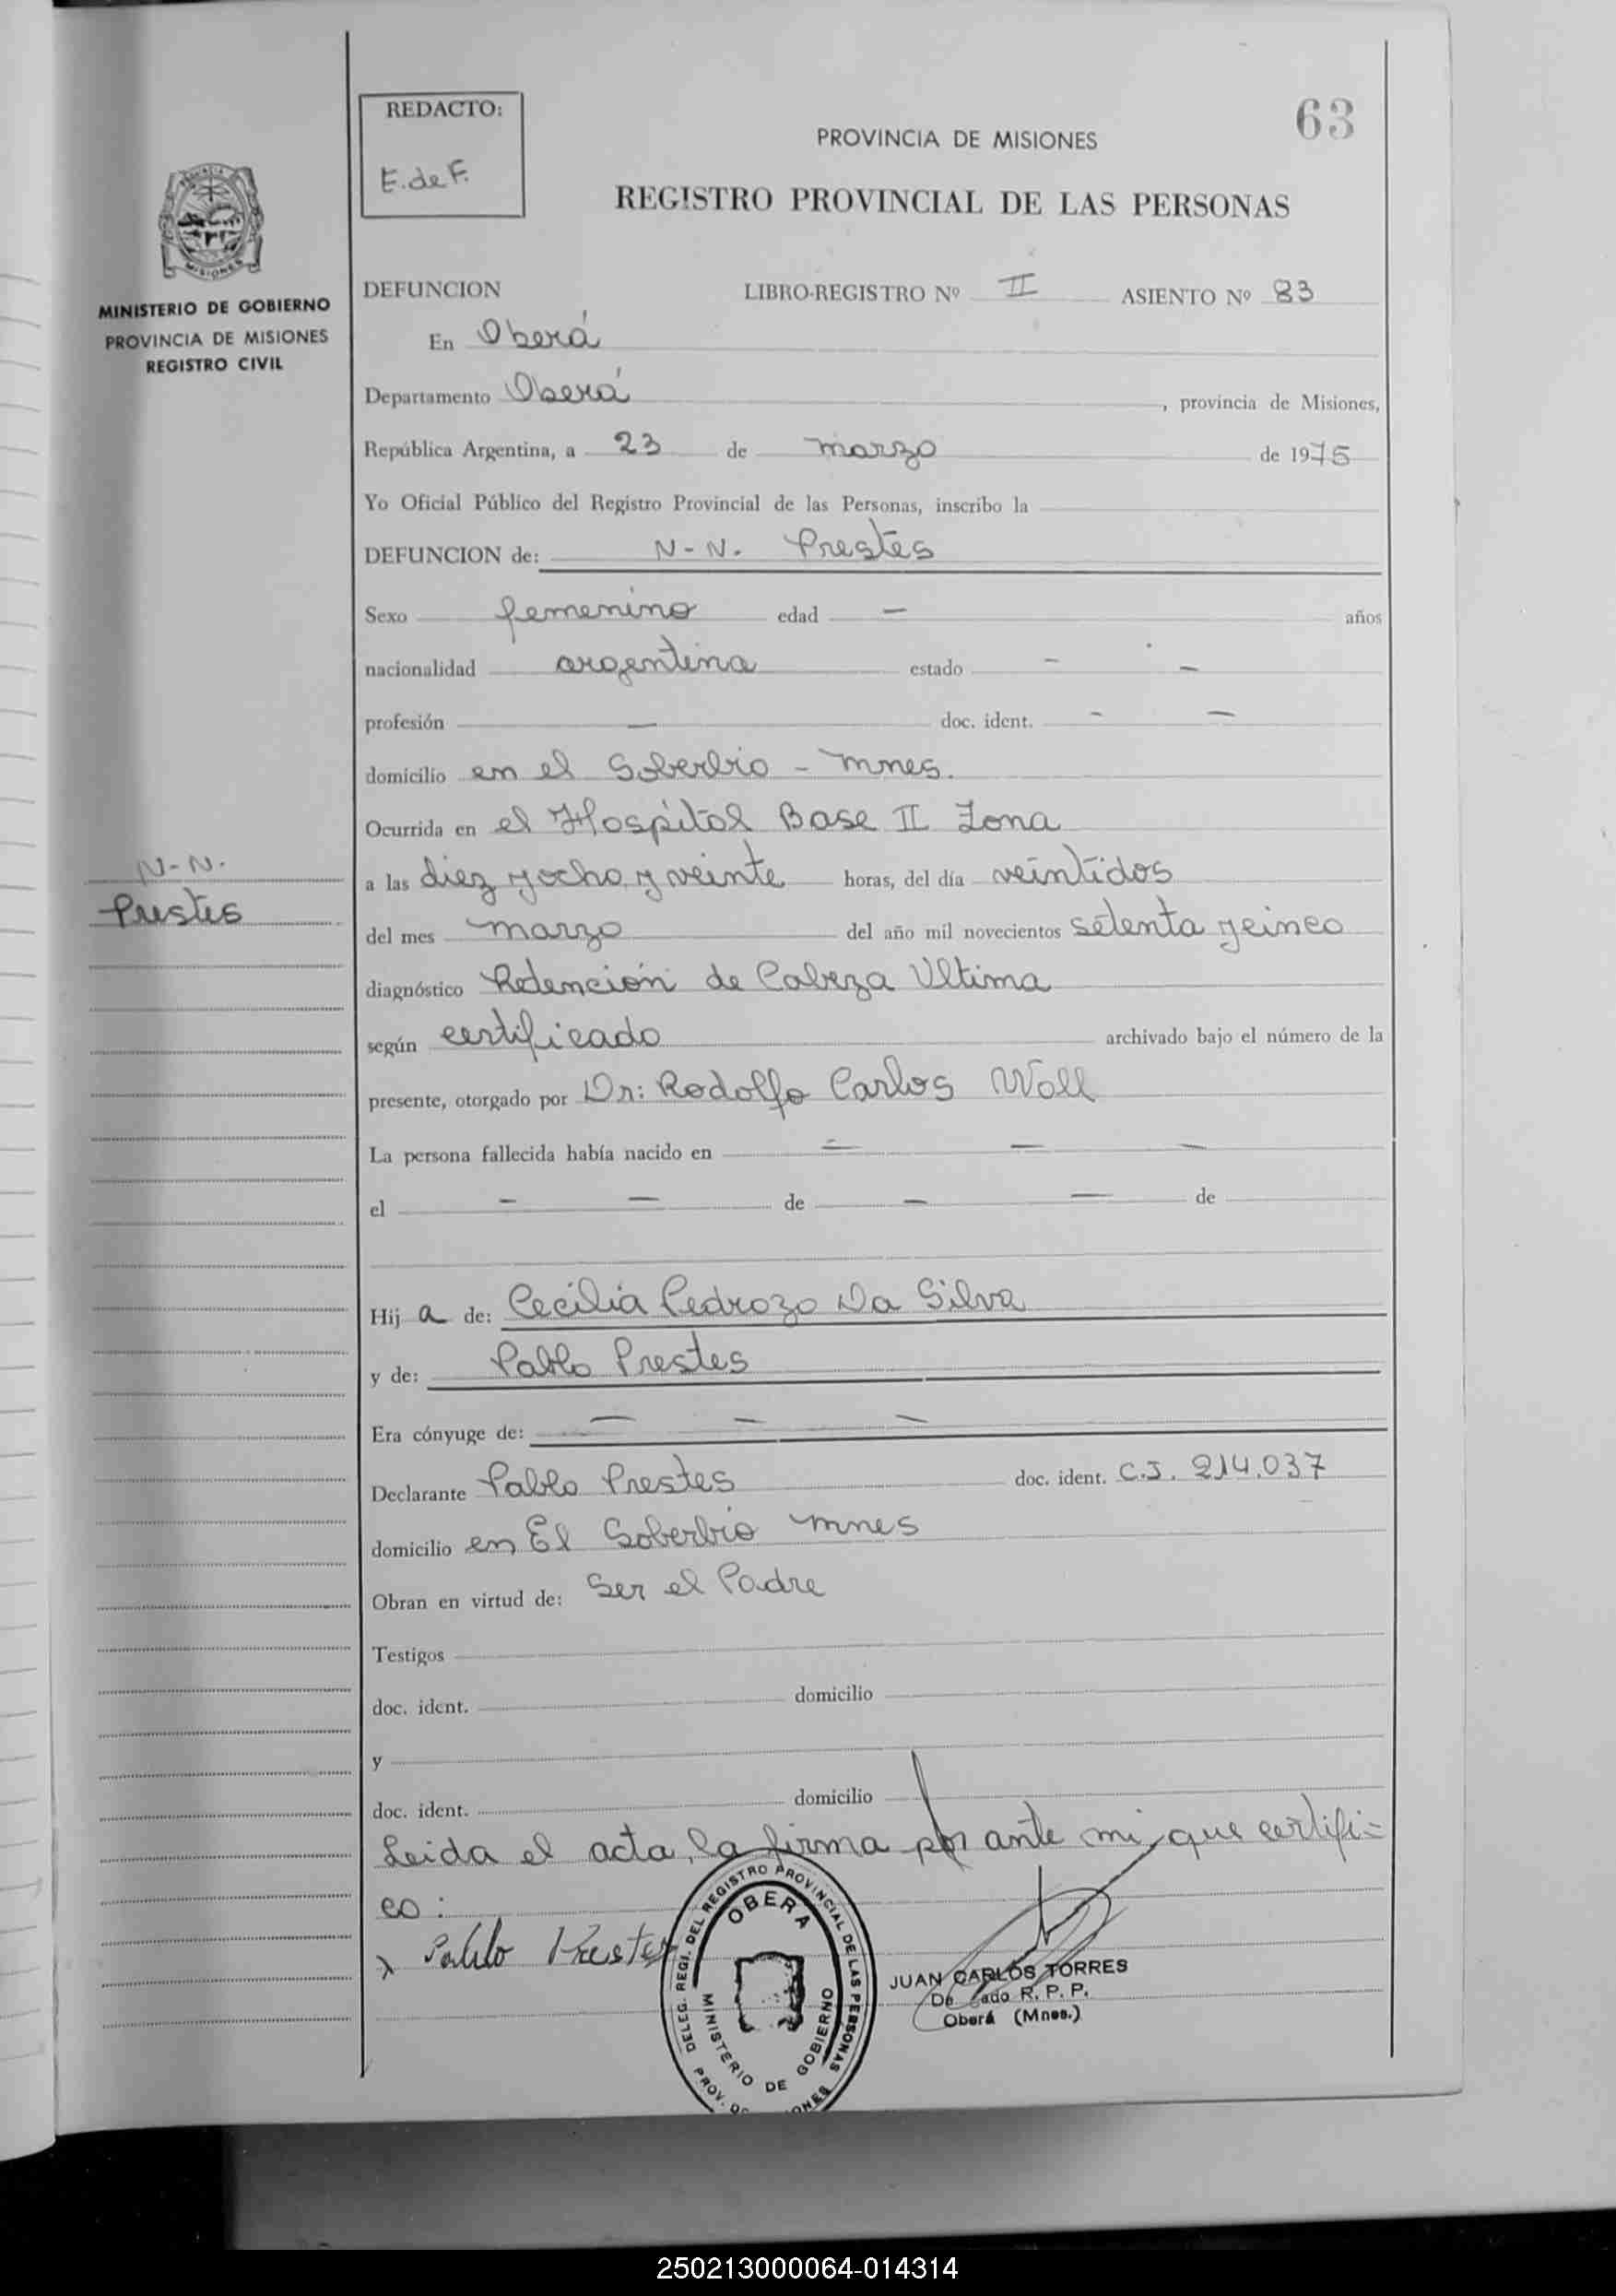 REDACTO:
E. de F.
63
PROVINCIA DE MISIONES
REGISTRO PROVINCIAL DE LAS PERSONAS
MISIONES
MINISTERIO DE GOBIERNO
PROVINCIA DE MISIONES
REGISTRO CIVIL
DEFUNCION LIBRO-REGISTRO Nº II ASIENTO Nº 83
En Oberá
Departamento Oberá, provincia de Misiones,
República Argentina, a 23 de marzo de 1975
Yo Oficial Público del Registro Provincial de las Personas, inscribo la
DEFUNCION de: N-N. Prestes
Sexo femenino edad — años
nacionalidad argentina estado — —
profesión — doc. ident. — —
domicilio en el Soberbio - Mnes.
Ocurrida en el Hospital Base II Zona
N-N.
Prestes
a las diez y ocho y veinte horas, del día veintidos
del mes marzo del año mil novecientos setenta y cinco
diagnóstico Retención de Cabeza Ultima
según certificado archivado bajo el número de la
presente, otorgado por Dr: Rodolfo Carlos Woll
La persona fallecida había nacido en — — —
el — — de — — de
Hij a de: Cecilia Pedrozo Da Silva
y de: Pablo Prestes
Era cónyuge de: — — —
Declarante Pablo Prestes doc. ident. C.I. 214.037
domicilio en El Soberbio Mnes
Obran en virtud de: Ser el Padre
Testigos
doc. ident. domicilio
y
doc. ident. domicilio
Leida el acta, la firma por ante mi, que certifi=
co:
x Pablo Prestes
DELEG. REGI. DEL REGISTRO PROVINCIAL DE LAS PERSONAS
OBERA
MINISTERIO DE GOBIERNO
PROV. DE MISIONES
JUAN CARLOS TORRES
R. P. P.
Oberá (Mnes.)
250213000064-014314